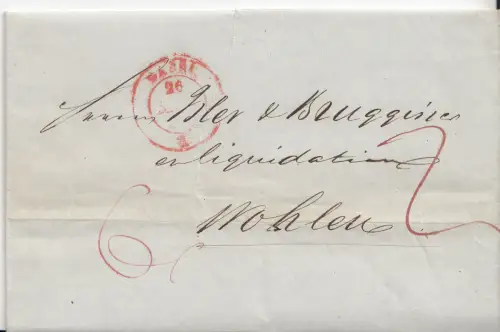 BASEL
26
Herrn Isler & Bruggisser
en liquidation
Wohlen
6
2